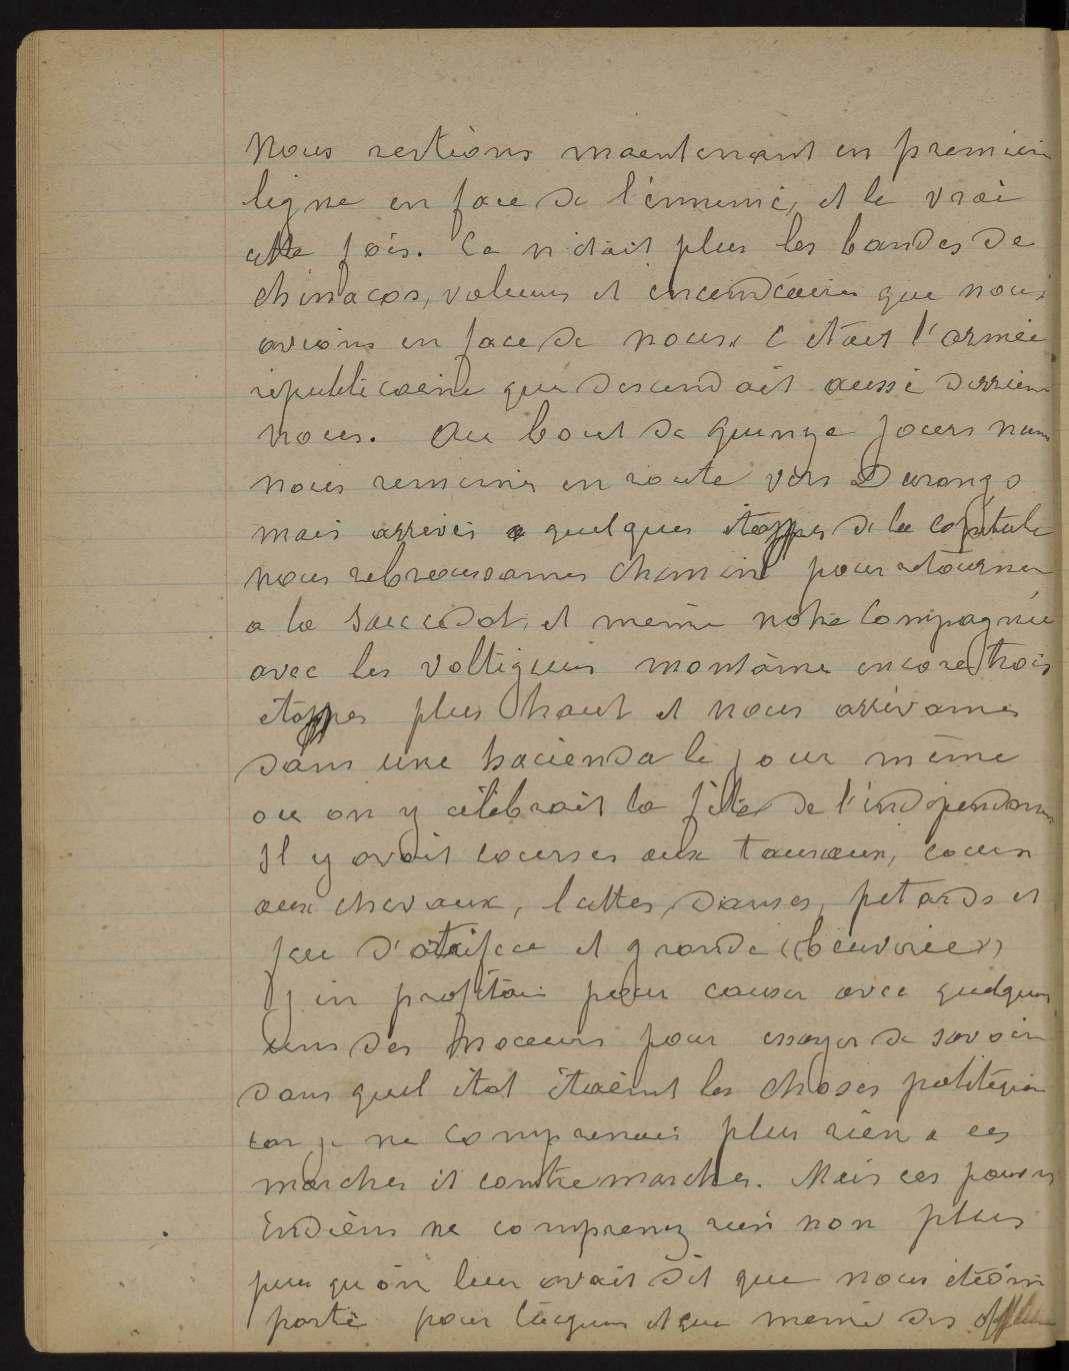 Nous restions maentenant en premiere
ligne en face de l'ennemi, et le vrai
cette fois. Ce n'etait plus les bandes de
chinacos, voleurs et incendiaires que nous
avions en face de nous, c'etait l'armée
republicaine que descendait aussi derriere
nous. Au bout de quinze jours nous
nous remimes en route vers Durango
mais arrivés a quelques étapes de la capitale
nous rebroussames chemin pour retourner
a la et même notre Compagnie
avec les voltigeurs montâme encore trois
étapes plus haut et nous arrivames
dans une hacienda le jour même
ou on y célébrait la fête de l'independance
Il y avait courses aux taureaux, courses
aux chevaux, luttes, danses, petards et
feu d'artifice et grande (beuverie)
J'en profitai pour causer avec quelques
uns des pour essayer de savoir
dans quel état étaient les choses politiques
car je ne comprenais plus rien a ces
marches et contremarches. Mais ces pauvres
Indiens ne comprenez rien non plus
puis qu'on leur avait dit que nous étions
parti pour et que même des